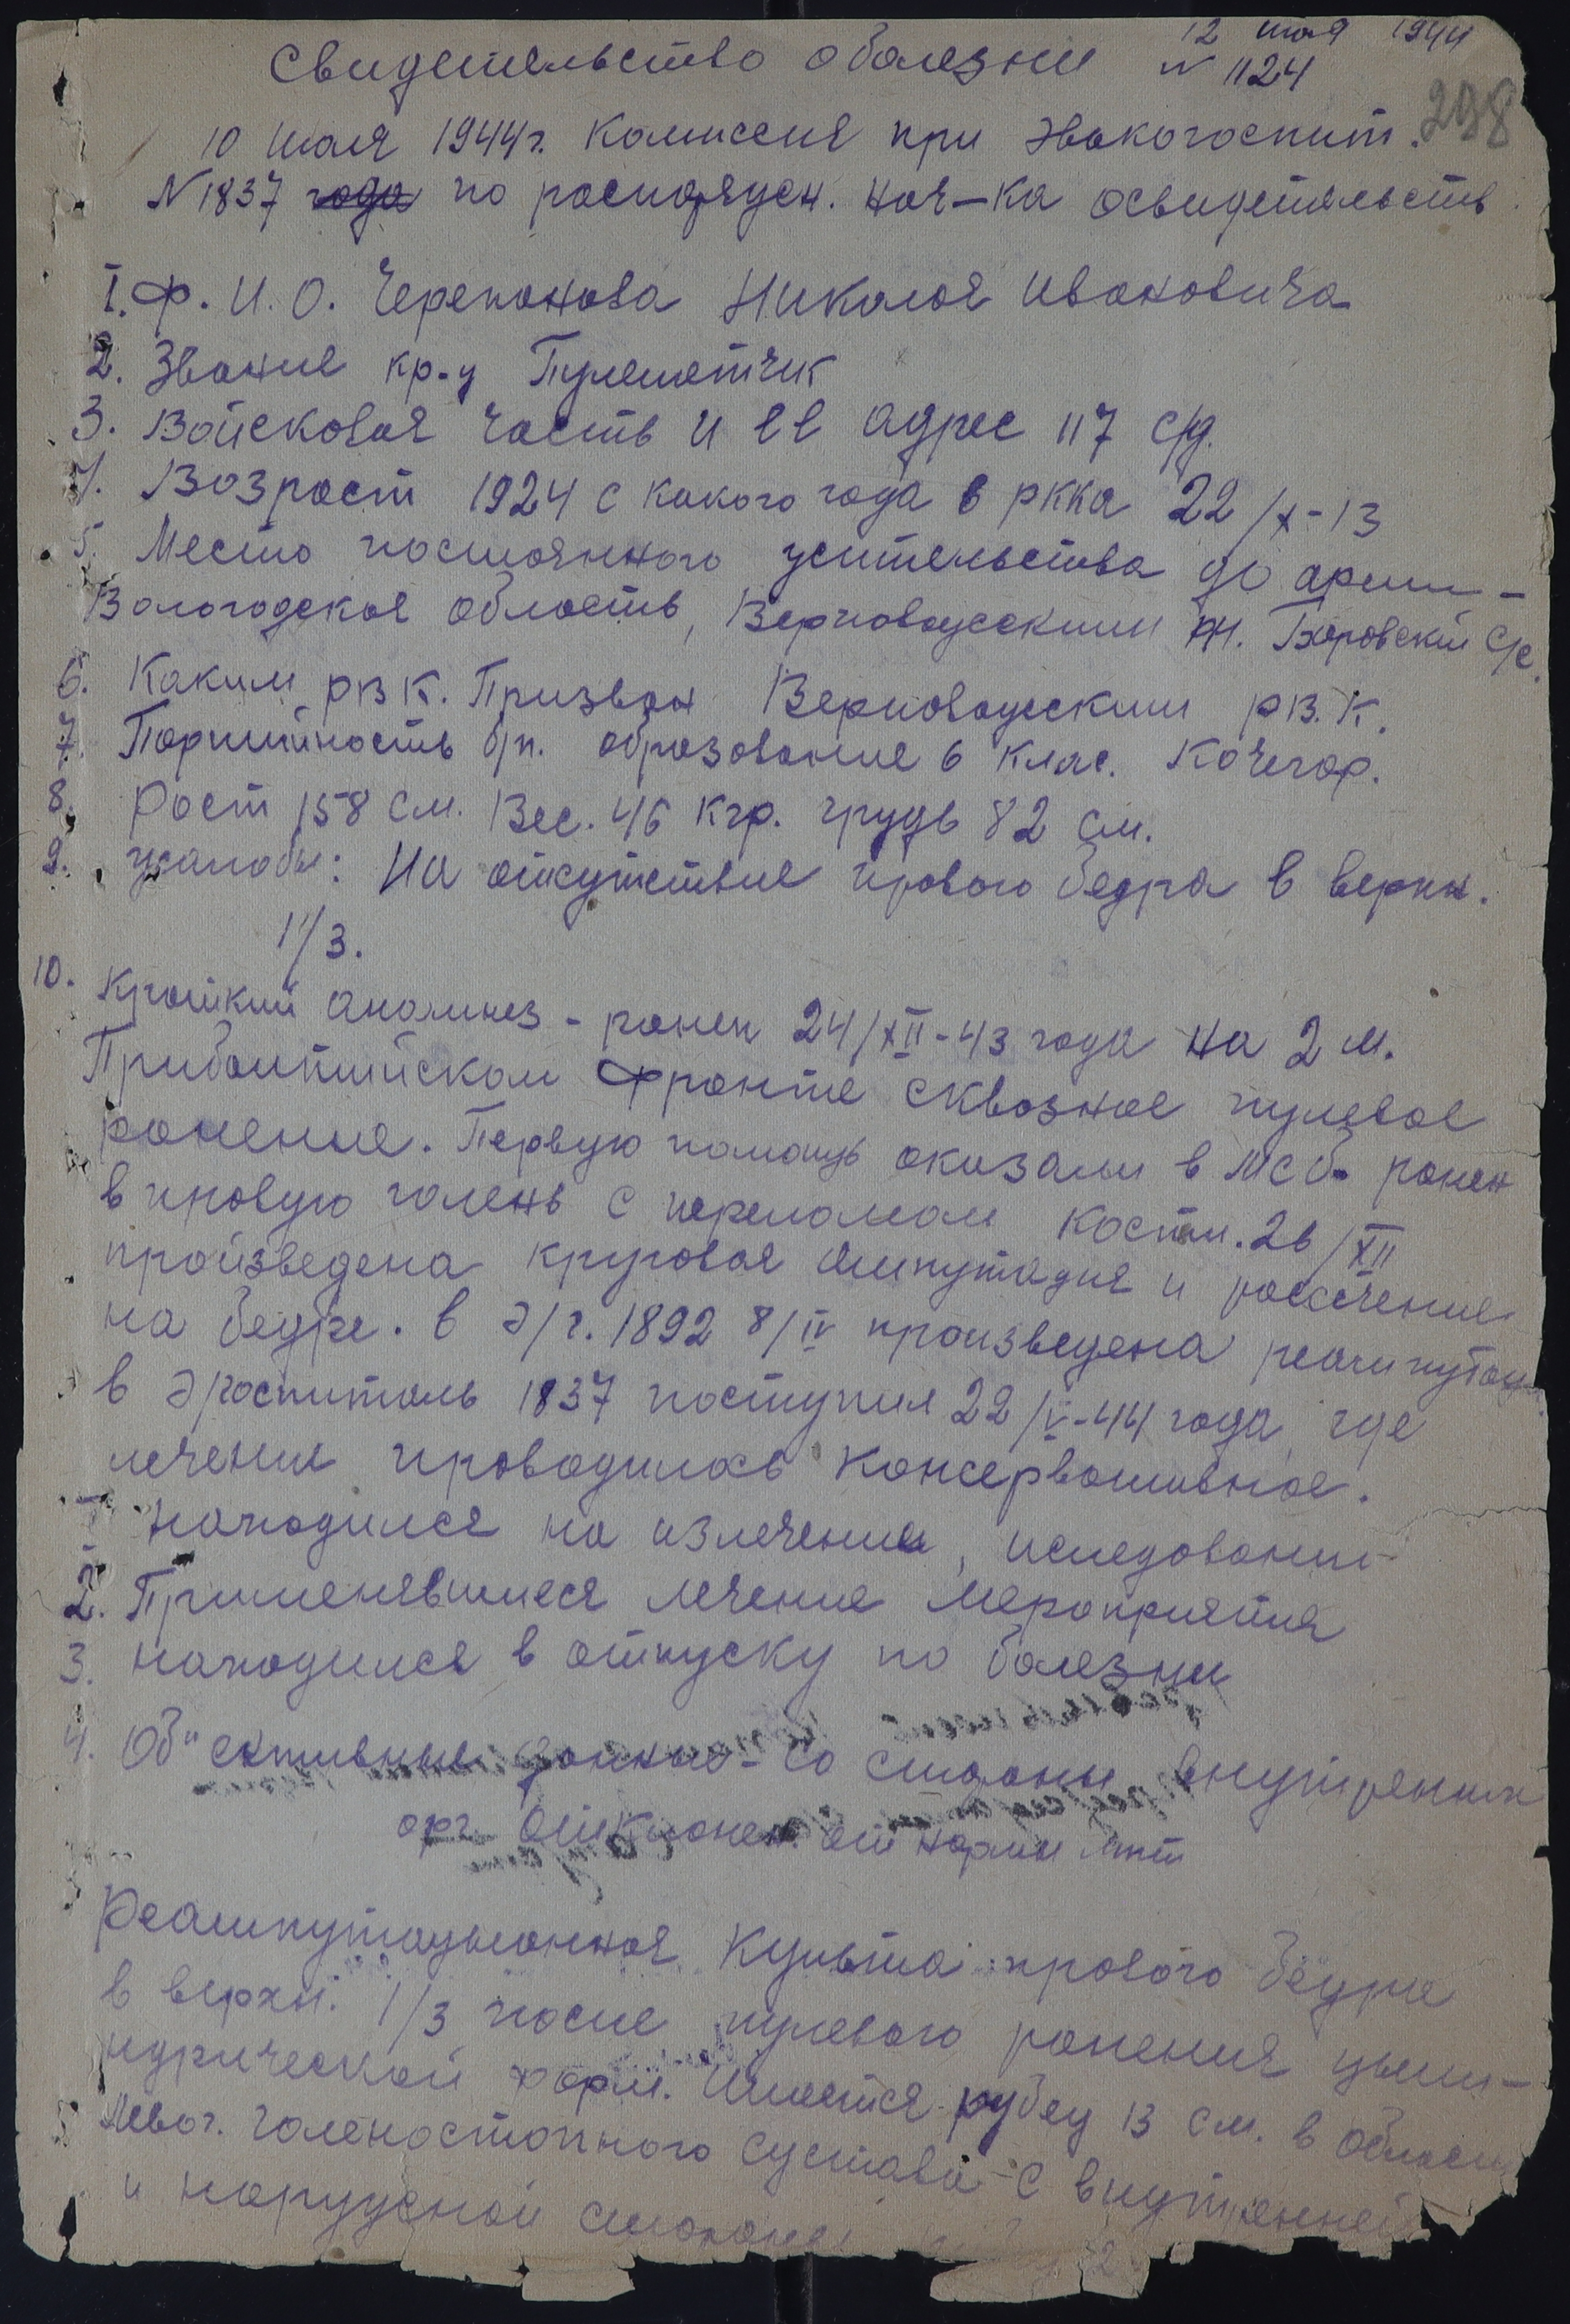 12 мая 1944
Свидетельство о болезни N 1124
298
10 мая 1944 г. Комиссия при Эвакогоспит.
N 1837 года по распоряжен. нач-ка освидетельств.
I. Ф. И. О. Черепанова Николая Ивановича
2. Звание кр-ц Пулеметчик
3. Войсковая часть и её адрес 117 с/д.
4. Возраст 1924 с какого года в РККА 22/X-13
5. Место постоянного жительства до армии-
Вологодская область, Верховажскии рн. Боровский с/с.
6. Каким РВК. Призван Верховажским РВ.К.
7. Партийность б/п. образование 6 клас. Кочегар.
8. Рост 158 см. Вес. 46 кгр. грудь 82 см.
9. жалобы: На отсутствие правого бедра в верхн.
1/3.
10. Краткий анамнез - ранен 24/XII-43 года на 2 м.
Прибалтийском фронте сквозное пулевое
ранение. Первую помощь оказали в МСб. ранен
в правую голень с переломом кости. 26/XII
произведена круговая ампутация и рассечение
на бедре. в э/г. 1892 8/IV произведена реампутац.
в эгоспиталь 1837 поступил 22/IV-44 года, где
лечения проводилось консервативное.
1. находился на излечении, иследовании-
2. Применявшиеся лечение мероприятия
3. находился в отпуску по болезни
4. Об"ективные данные - со стороны внутренних
орг. отклонен от нормы нет
Реампутацыонная культа правого бедра
в верхн. 1/3 после пулевого ранения цылин-
ндрической форм. Имеется рубец 13 см. в области
левог. голеностопного сустава с внутренней
и наружной стороны